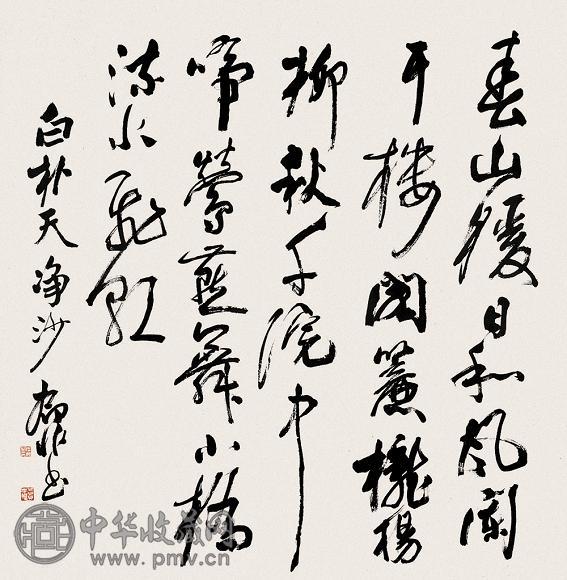 春山暖日和风阑
干楼閣簾櫳楊
柳秋千院中
啼鶯燕舞小橋
流水飛紅
白朴天净沙 书
中华收藏网
www.pmv.cn